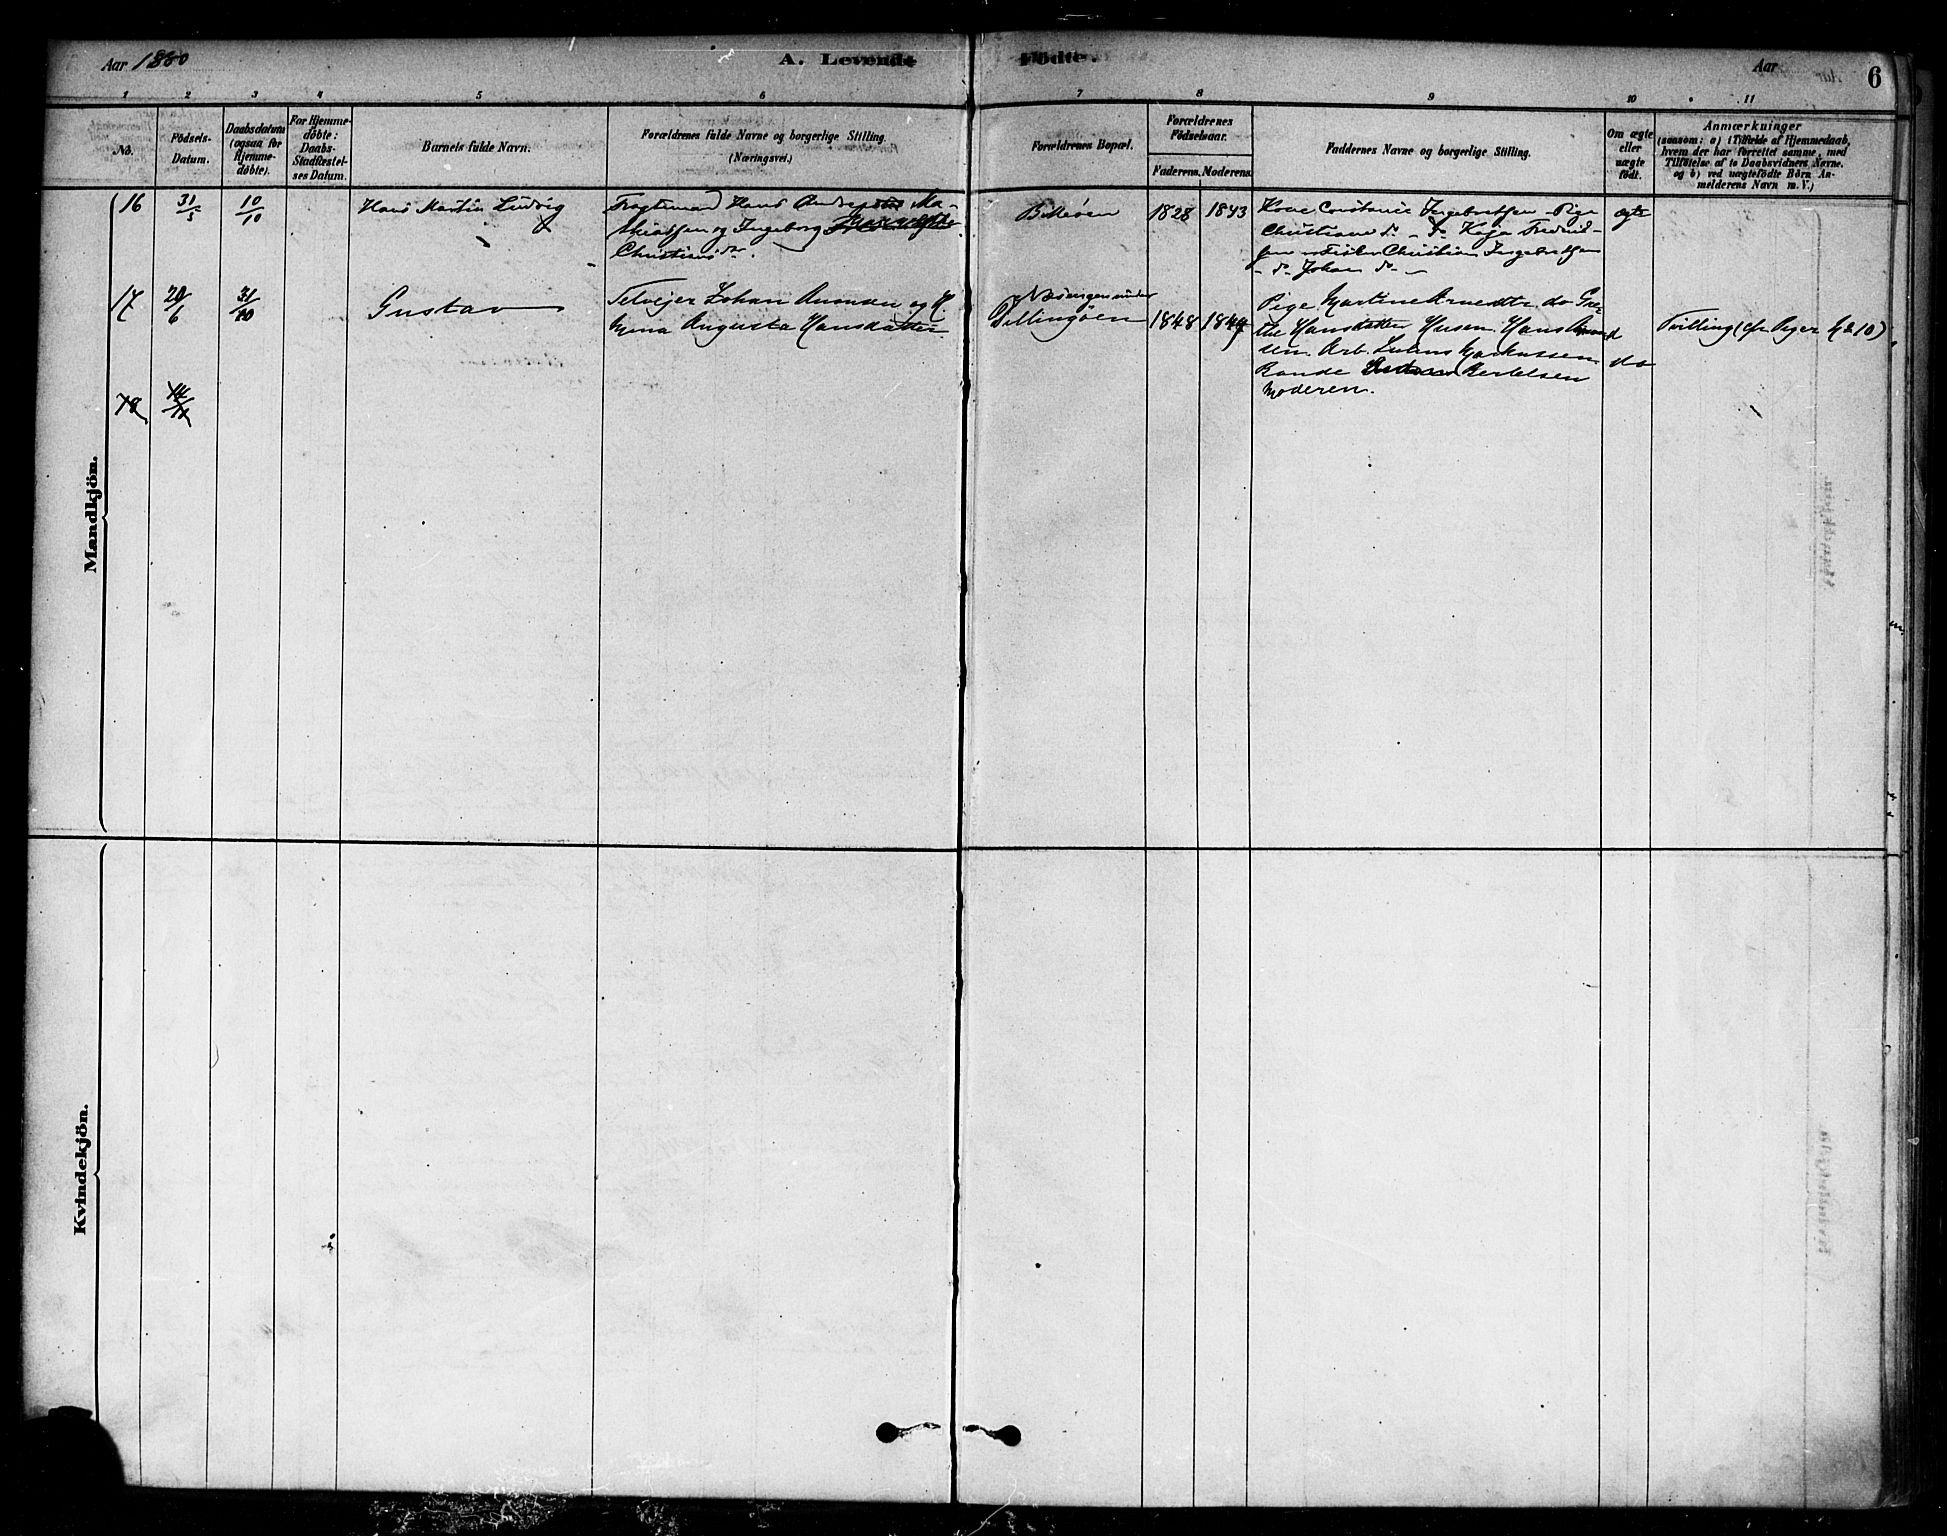 Aar 1880
A. Levende Födte.
Aar
6
1 2 3 4 5 6 7 8 9 10 11
No.
Födsels-
Datum.
Daabsdatum
(ogsaa for
Hjemme-
döbte).
For Hjemme-
döbte:
Daabs-
Stadfæstel-
ses Datum.
Barnets fulde Navn.
Forældrenes fulde Navne og borgerlige Stilling.
(Næringsvei.)
Forældrenes Bopæl.
Forældrenes
Födselsaar.
Faderens. Moderens.
Faddernes Navne og borgerlige Stilling.
Om ægte
eller
uægte
födt.
Anmærkninger
(saasom: a) i Tilfælde af Hjemmedaab,
hvem der har forrettet samme, med
Tilföielse af to Daabsvidners Navne.
og b) ved uægtefödte Börn An-
melderens Navn m. V.)
Mandkjön.
16
31/5
10/10
Hans Martin Ludvig
Hans Andreas Ma-
thiassen og Ingeborg
Christiansdr.
Bileöen
1828
1843
Kone Constance Ingebretsen Pige
Christiane do - do Kaja Fredrik-
sen Christian Ingebretsen
- do Johan do -
ægte
17
20/6
31/10
Gustav
Selveier Johan Amundsen og H.
Mina Augusta Hansdatter
Dillingöen
1848
184
Pige Martine Arnedtr. do Gre-
the Hansdatter Husm. Hans Amund
sen. Arb. Julius Markussen
Bertelsen
Moderen.
do
Tvilling (cfr Piger No 10)
18
14/12
Kvindekjön.